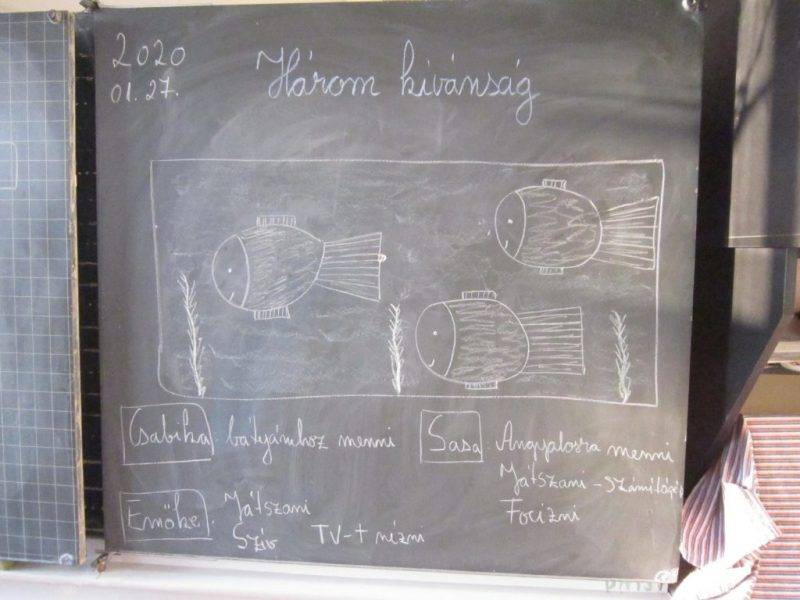 2020
01.27.
Három kívánság
Csabika: bátyámhoz menni
Sasa: Angyalosra menni
Játszani - számítógép
Focizni
Emőke: Játszani
TV-t nézni